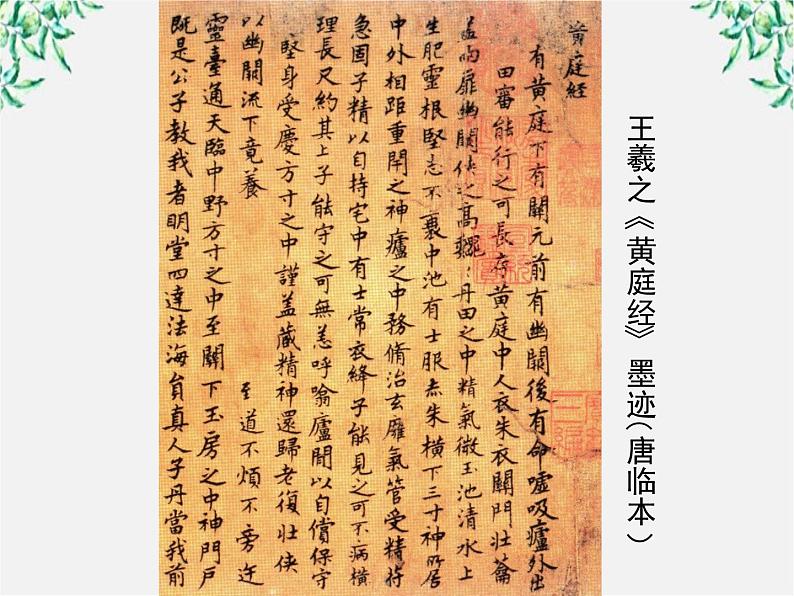 黄庭经
有黄庭下有關元前有幽闕後有命噓吸廬外出
田審能行之可長存黄庭中人衣朱衣關門壮蘥
盖兩扉幽闕侠之高巍:丹田之中精氣微玉池清水上
生肥靈根堅志不衰中池有士服赤朱横下三寸神所居
中外相距重閇之神廬之中務脩治玄廱氣管受精符
急固子精以自持宅中有士常衣絳子能見之可不病横
理長尺約其上子能守之可無恙呼噏廬閒以自償保守
堅身受慶方寸之中謹盖藏精神還歸老復壮侠
以幽闕流下竟養 至道不煩不旁迕
靈臺通天臨中野方寸之中至關下玉房之中神門户
既是公子教我者明堂四達法海負真人子丹當我前
王羲之《黄庭经》墨迹(唐临本)